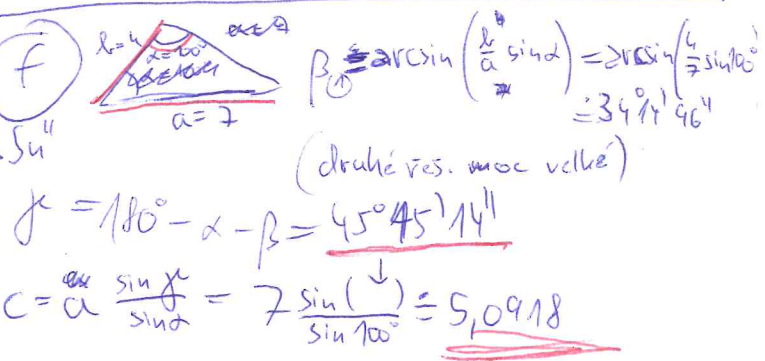 f
b=4
α=100°
a=7
β₁ = arcsin(b/a sinα) = arcsin(4/7 sin100°
≐ 34°14'46"
(druhé řes. moc velké)
γ = 180° - α - β = 45°45'14"
c = a sin γ / sin α = 7 sin( ) / sin 100° ≐ 5,0918